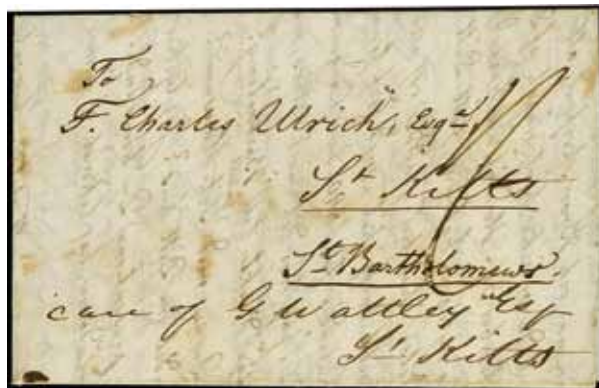 To
F. Charles Ulrich, Esqre
St Kitts
St Bartholomews.
care of G Wattley Esq
St Kitts